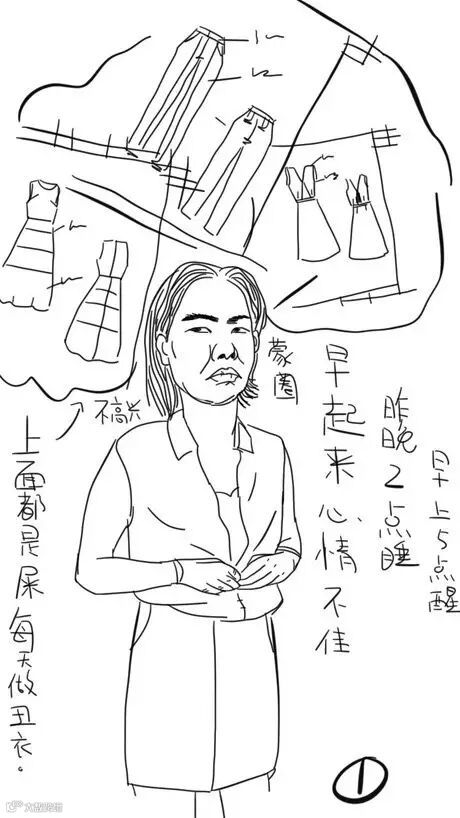 蒙圈
早起来心情不佳
昨晚2点睡
早上5点醒
不高兴
上面都是屎每天做丑衣。
1